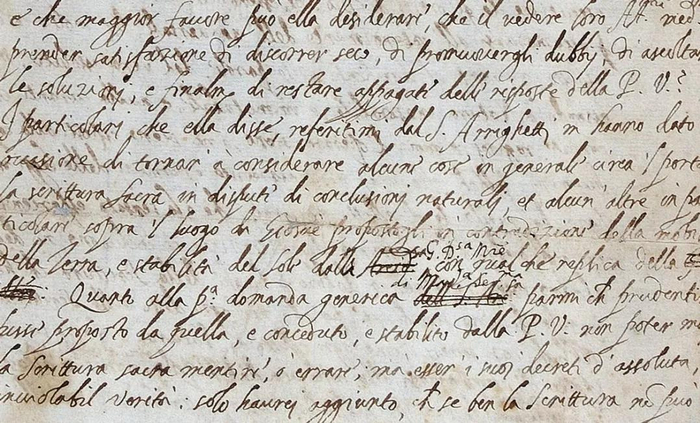 e che maggior favore può ella desiderare, che il vedere loro Al.
prender satisfazione di discorrer seco, di promuovergli dubbij, di ascolta
le soluzioni, e finalm. di restare appagati delle risposte della P. V.
I particolari che ella disse, referitimi dal S. Arrighetti m hanno dato
di tornar à considerare alcune cose in generale circa 'l port
la scrittura sacra in dispute di conclusioni naturali, et alcun' altre in pa
ticolare sopra 'l luogo di Giosue propostogli in contradizione della mobi
della Terra, e stabilità del Sole dalla con qualche replica della
Quanto alla p.ª domanda generica parmi ch prudenti
proposto da quella, e conceduto, e stabilito dalla P. V. non poter m
la Scrittura sacra mentire, ò errare, ma esser i suoi decreti d' assoluta,
inviolabil verità: solo haurei aggiunto, ch se ben la Scrittura nō può